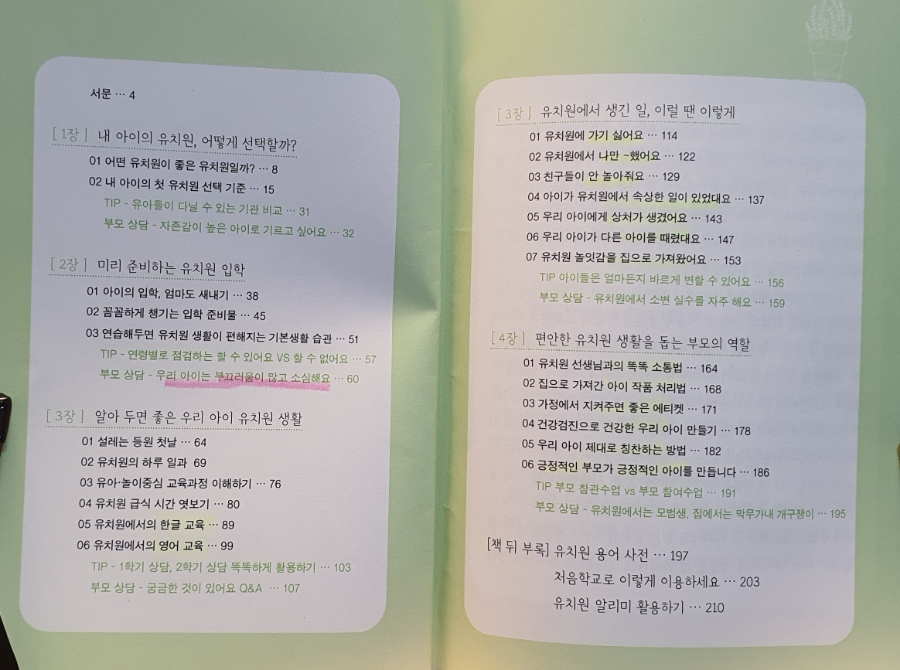 서문 … 4
[1장] 내 아이의 유치원, 어떻게 선택할까?
01 어떤 유치원이 좋은 유치원일까? … 8
02 내 아이의 첫 유치원 선택 기준 … 15
TIP - 유아들이 다닐 수 있는 기관 비교 … 31
부모 상담 - 자존감이 높은 아이로 기르고 싶어요 … 32
[2장] 미리 준비하는 유치원 입학
01 아이의 입학, 엄마도 새내기 … 38
02 꼼꼼하게 챙기는 입학 준비물 … 45
03 연습해두면 유치원 생활이 편해지는 기본생활 습관 … 51
TIP - 연령별로 점검하는 할 수 있어요 VS 할 수 없어요 … 57
부모 상담 - 우리 아이는 부끄러움이 많고 소심해요 … 60
[3장] 알아 두면 좋은 우리 아이 유치원 생활
01 설레는 등원 첫날 … 64
02 유치원의 하루 일과 69
03 유아·놀이중심 교육과정 이해하기 … 76
04 유치원 급식 시간 엿보기 … 80
05 유치원에서의 한글 교육 … 89
06 유치원에서의 영어 교육 … 99
TIP - 1학기 상담, 2학기 상담 똑똑하게 활용하기 … 103
부모 상담 - 궁금한 것이 있어요 Q&A … 107
[3장] 유치원에서 생긴 일, 이럴 땐 이렇게
01 유치원에 가기 싫어요 … 114
02 유치원에서 나만 ~했어요 … 122
03 친구들이 안 놀아줘요 … 129
04 아이가 유치원에서 속상한 일이 있었대요 … 137
05 우리 아이에게 상처가 생겼어요 … 143
06 우리 아이가 다른 아이를 때렸대요 … 147
07 유치원 놀잇감을 집으로 가져왔어요 … 153
TIP 아이들은 얼마든지 바르게 변할 수 있어요 … 156
부모 상담 - 유치원에서 소변 실수를 자주 해요 … 159
[4장] 편안한 유치원 생활을 돕는 부모의 역할
01 유치원 선생님과의 똑똑 소통법 … 164
02 집으로 가져간 아이 작품 처리법 … 168
03 가정에서 지켜주면 좋은 에티켓 … 171
04 건강검진으로 건강한 우리 아이 만들기 … 178
05 우리 아이 제대로 칭찬하는 방법 … 182
06 긍정적인 부모가 긍정적인 아이를 만듭니다 … 186
TIP 부모 참관수업 vs 부모 참여수업 … 191
부모 상담 - 유치원에서는 모범생, 집에서는 막무가내 개구쟁이 … 195
[책 뒤 부록] 유치원 용어 사전 … 197
처음학교로 이렇게 이용하세요 … 203
유치원 알리미 활용하기 … 210